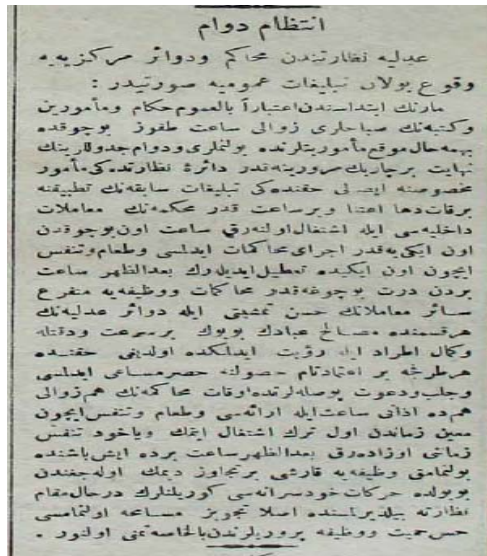 انتظام دوام
عدلیه نظارتندن محاکم ودوائر مرکزیه‌یه
وقوع بولان تبلیغات عمومیه صورتیدر :
مارتك ابتداسندن اعتباراً بالعموم حکام ومأمورین
وکتبه‌نك صباحلری زوالی ساعت طقوز بوچوقده
بهمه‌حال موقع مأموریتلرنده بولنملری ودوام جدوللرینك
نهایت برچاریك مرورینه‌قدر دائرۀ نظارتده‌کی مأمور
مخصوصنه ایصالی حقنده‌کی تبلیغات سابقه‌نك تطبیقنه
برقات‌دها اعتنا وبرساعت قدر محکمه‌نك معاملات
داخلیه‌سی ایله اشتغال اولنه‌رق ساعت اون‌بوچوقدن
اون ایکی‌یه‌قدر اجرای محاکمات ایدلمسی وطعام‌وتنفس
ایچون اون ایکیده تعطیل‌ایدیله‌رك بعدالظهر ساعت
بردن درت بوچوغه‌قدر محاکمات ووظیفه‌یه متفرع
سائر معاملاتك حسن تمشیتی ایله دوائر عدلیه‌نك
هرقسمنده مصالح عبادك بویوك برسرعت ودقتله
وکمال اطراد ایله رؤیت ایدلمکده اولدیغی حقنده
هرطرفجه بر اعتمادتام حصولنه حصرمساعی ایدلمسی
وجلب‌ودعوت پوصله‌لرنده‌اوقات محاکمه‌نك هم‌زوالی
هم‌ده اذانی ساعت‌ایله ارائه‌سی وطعام وتنفس‌ایچون
معین زماندن اول ترك اشتغال ایتمك ویاخود تنفس
زمانی اوزاده‌رق بعدالظهرساعت برده ایش‌باشنده
بولنمامق وظیفه‌یه قارشی برتجاوز دیمك اوله‌جغندن
بویولده حرکات خودسرانه‌سی کوریلنلرك درحال‌مقام
نظارته بیلدیرلمسنده اصلا تجویز مسامحه اولنمامسی
حس‌حمیت ووظیفه پرورلرندن‌بالخاصه‌تمنی اولنور .